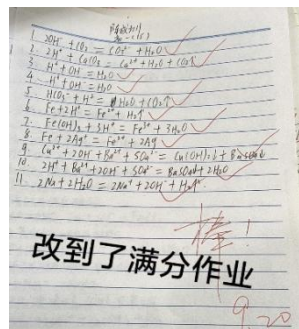 1. 2OH⁻ + CO₂ = CO₃²⁻ + H₂O
2. 2H⁺ + CaCO₃ = Ca²⁺ + H₂O + CO₂↑
3. H⁺ + OH⁻ = H₂O
4. H⁺ + OH⁻ = H₂O
5. HCO₃⁻ + H⁺ = H₂O + CO₂↑
6. Fe + 2H⁺ = Fe²⁺ + H₂↑
7. Fe(OH)₃ + 3H⁺ = Fe³⁺ + 3H₂O
8. Fe + 2Ag⁺ = Fe²⁺ + 2Ag
9. Cu²⁺ + 2OH⁻ + Ba²⁺ + SO₄²⁻ = Cu(OH)₂↓ + BaSO₄↓
10. 2H⁺ + Ba²⁺ + 2OH⁻ + SO₄²⁻ = BaSO₄↓ + 2H₂O
11. 2Na + 2H₂O = 2Na⁺ + 2OH⁻ + H₂↑
棒!
改到了满分作业
9.20